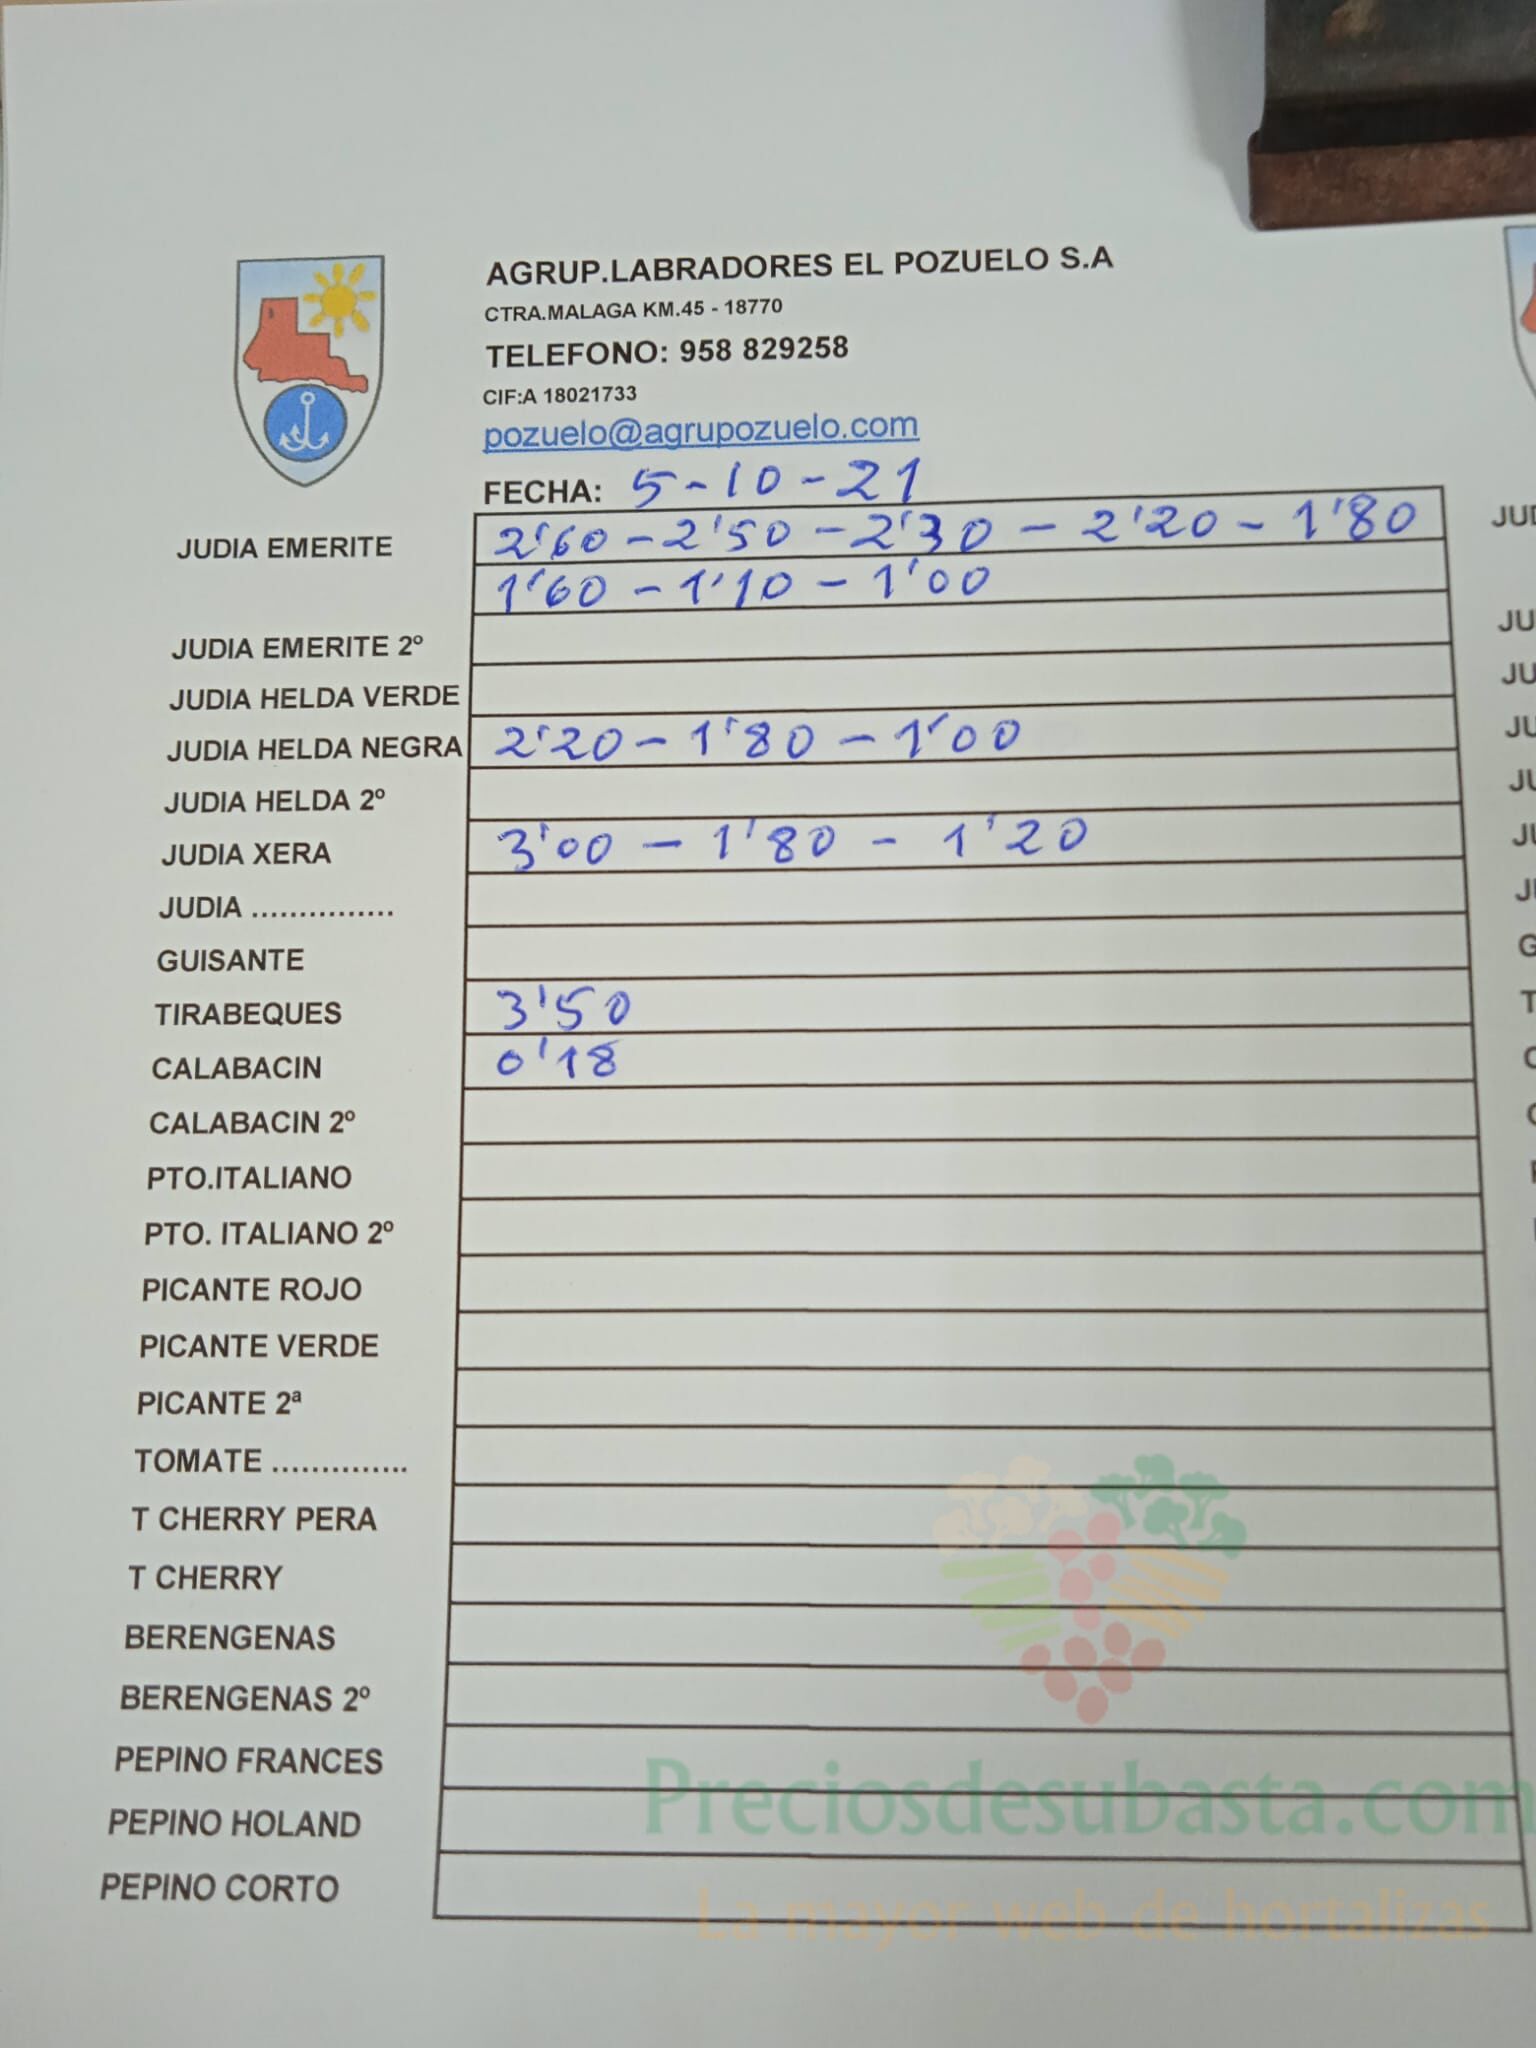 AGRUP.LABRADORES EL POZUELO S.A
CTRA.MALAGA KM.45 - 18770
TELEFONO: 958 829258
CIF:A 18021733
pozuelo@agrupozuelo.com
FECHA: 5-10-21
JUDIA EMERITE 2'60 - 2'50 - 2'30 - 2'20 - 1'80
1'60 - 1'10 - 1'00
JUDIA EMERITE 2º
JUDIA HELDA VERDE
JUDIA HELDA NEGRA 2'20 - 1'80 - 1'00
JUDIA HELDA 2º
JUDIA XERA 3'00 - 1'80 - 1'20
JUDIA ...............
GUISANTE
TIRABEQUES 3'50
CALABACIN 0'18
CALABACIN 2º
PTO.ITALIANO
PTO. ITALIANO 2º
PICANTE ROJO
PICANTE VERDE
PICANTE 2ª
TOMATE ..............
T CHERRY PERA
T CHERRY
BERENGENAS
BERENGENAS 2º
PEPINO FRANCES
PEPINO HOLAND
PEPINO CORTO
Preciosdesubasta.com
La mayor web de hortalizas